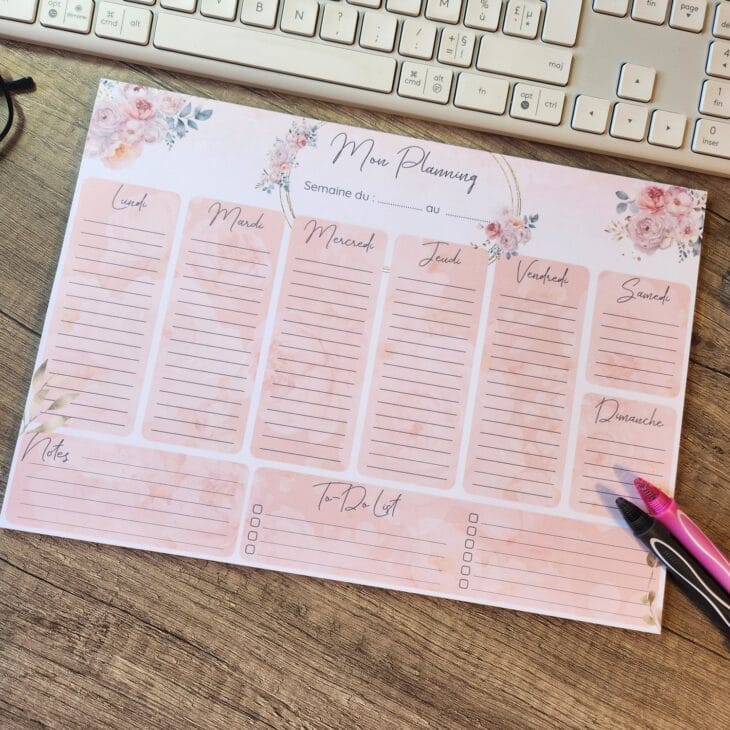 opt
cmd alt
B
N
?
,
;
.
:
/
+
=
%
ù
£
maj
cmd alt
fn
opt ctrl
fin
page
4
1
0
inser
Mon Planning
Semaine du : ............... au ...............
Lundi
Mardi
Mercredi
Jeudi
Vendredi
Samedi
Dimanche
Notes
To-Do List